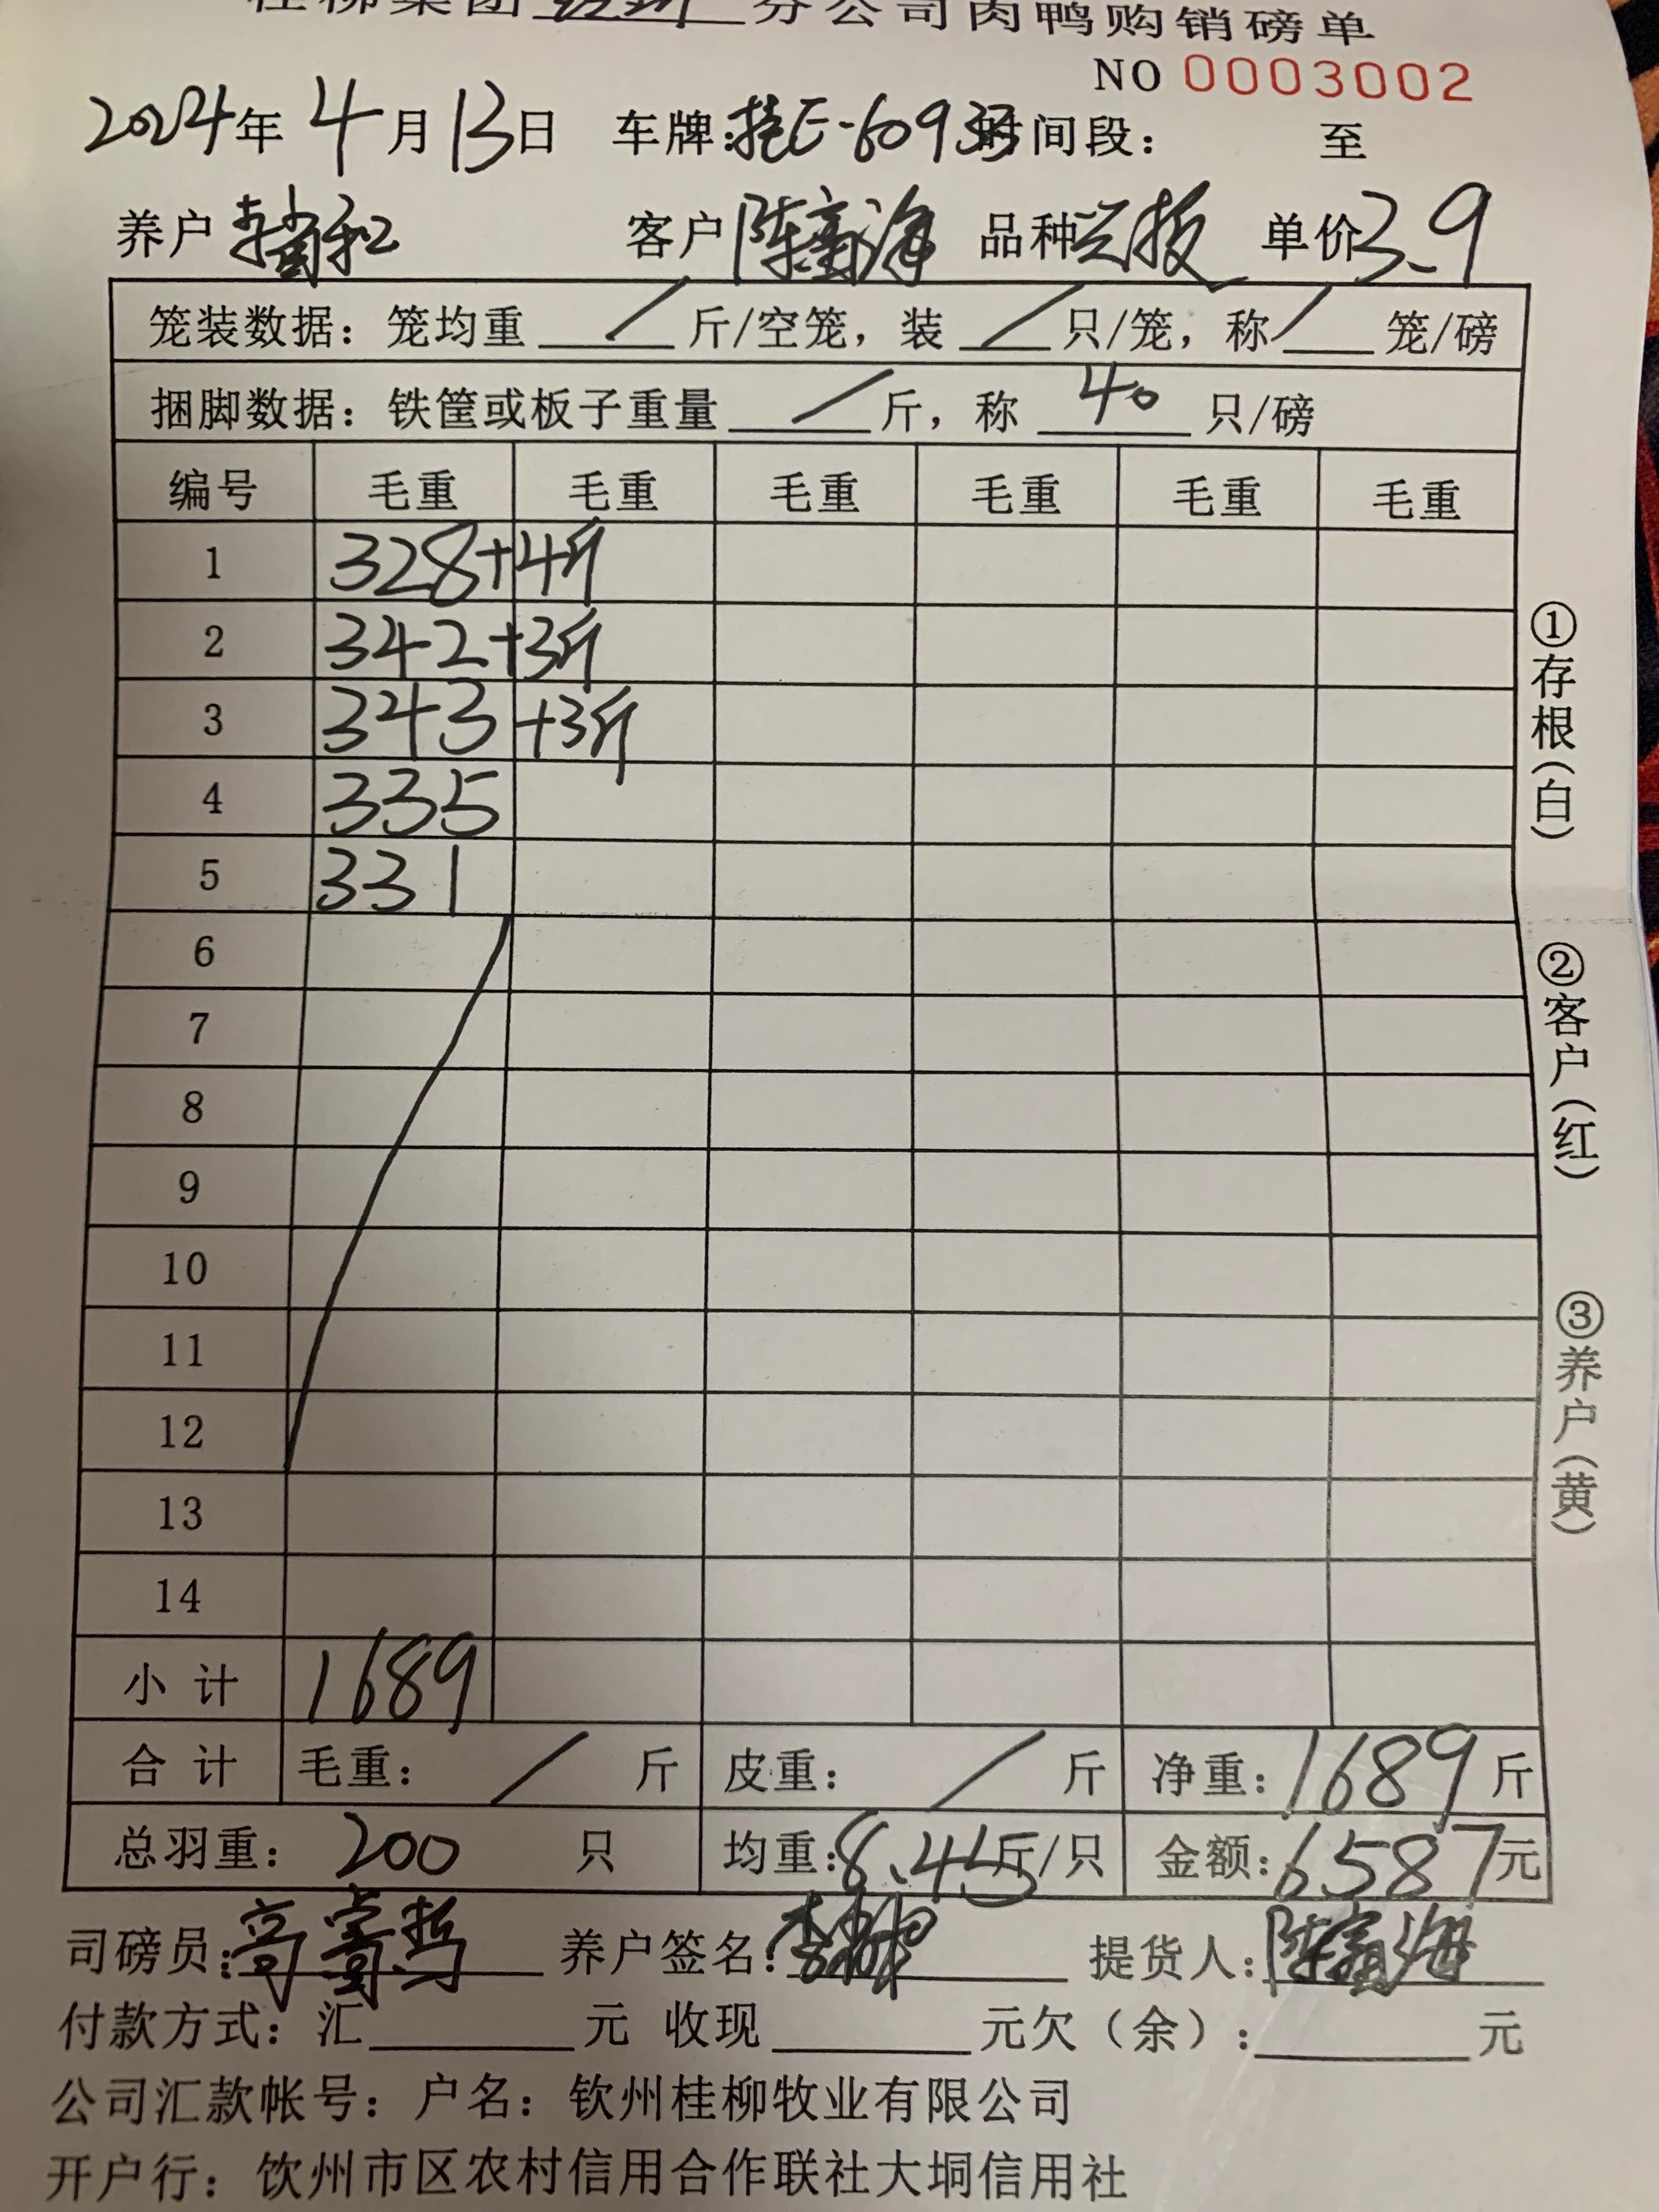 桂柳集团 分公司肉鸭购销磅单
NO 0003002
2024年 4月 13日 车牌:桂E-60933 时间段: 至
养户 客户 陈富海 品种 单价 3.9
笼装数据:笼均重 / 斤/空笼,装 / 只/笼,称 / 笼/磅
捆脚数据:铁筐或板子重量 / 斤,称 40 只/磅
编号 毛重 毛重 毛重 毛重 毛重 毛重
1 328+4斤
2 342+3斤
3 343+3斤
4 335
5 331
6
7
8
9
10
11
12
13
14
小计 1689
合计 毛重: / 斤 皮重: / 斤 净重:1689斤
总羽重: 200 只 均重:8.45斤/只 金额:6587元
司磅员: 养户签名: 提货人:陈富海
付款方式:汇 元 收现 元欠(余): 元
公司汇款帐号:户名:钦州桂柳牧业有限公司
开户行:饮州市区农村信用合作联社大垌信用社
①存根(白)
②客户(红)
③养户(黄)